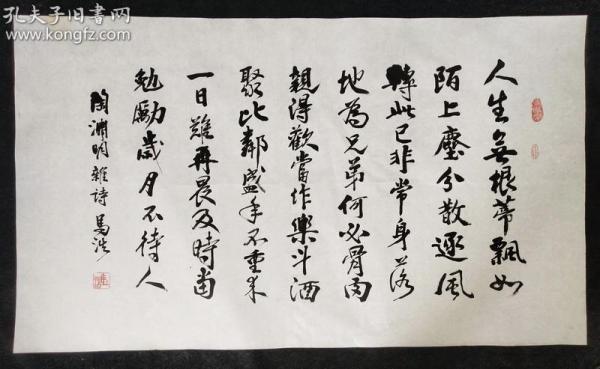 孔夫子旧书网
www.kongfz.com
人生無根蒂飄如
陌上塵分散逐風
轉此已非常身落
地為兄弟何必骨肉
親得歡當作樂斗酒
聚比鄰盛年不重来
一日難再晨及時當
勉勵歲月不待人
陶渊明雜诗 馬浩